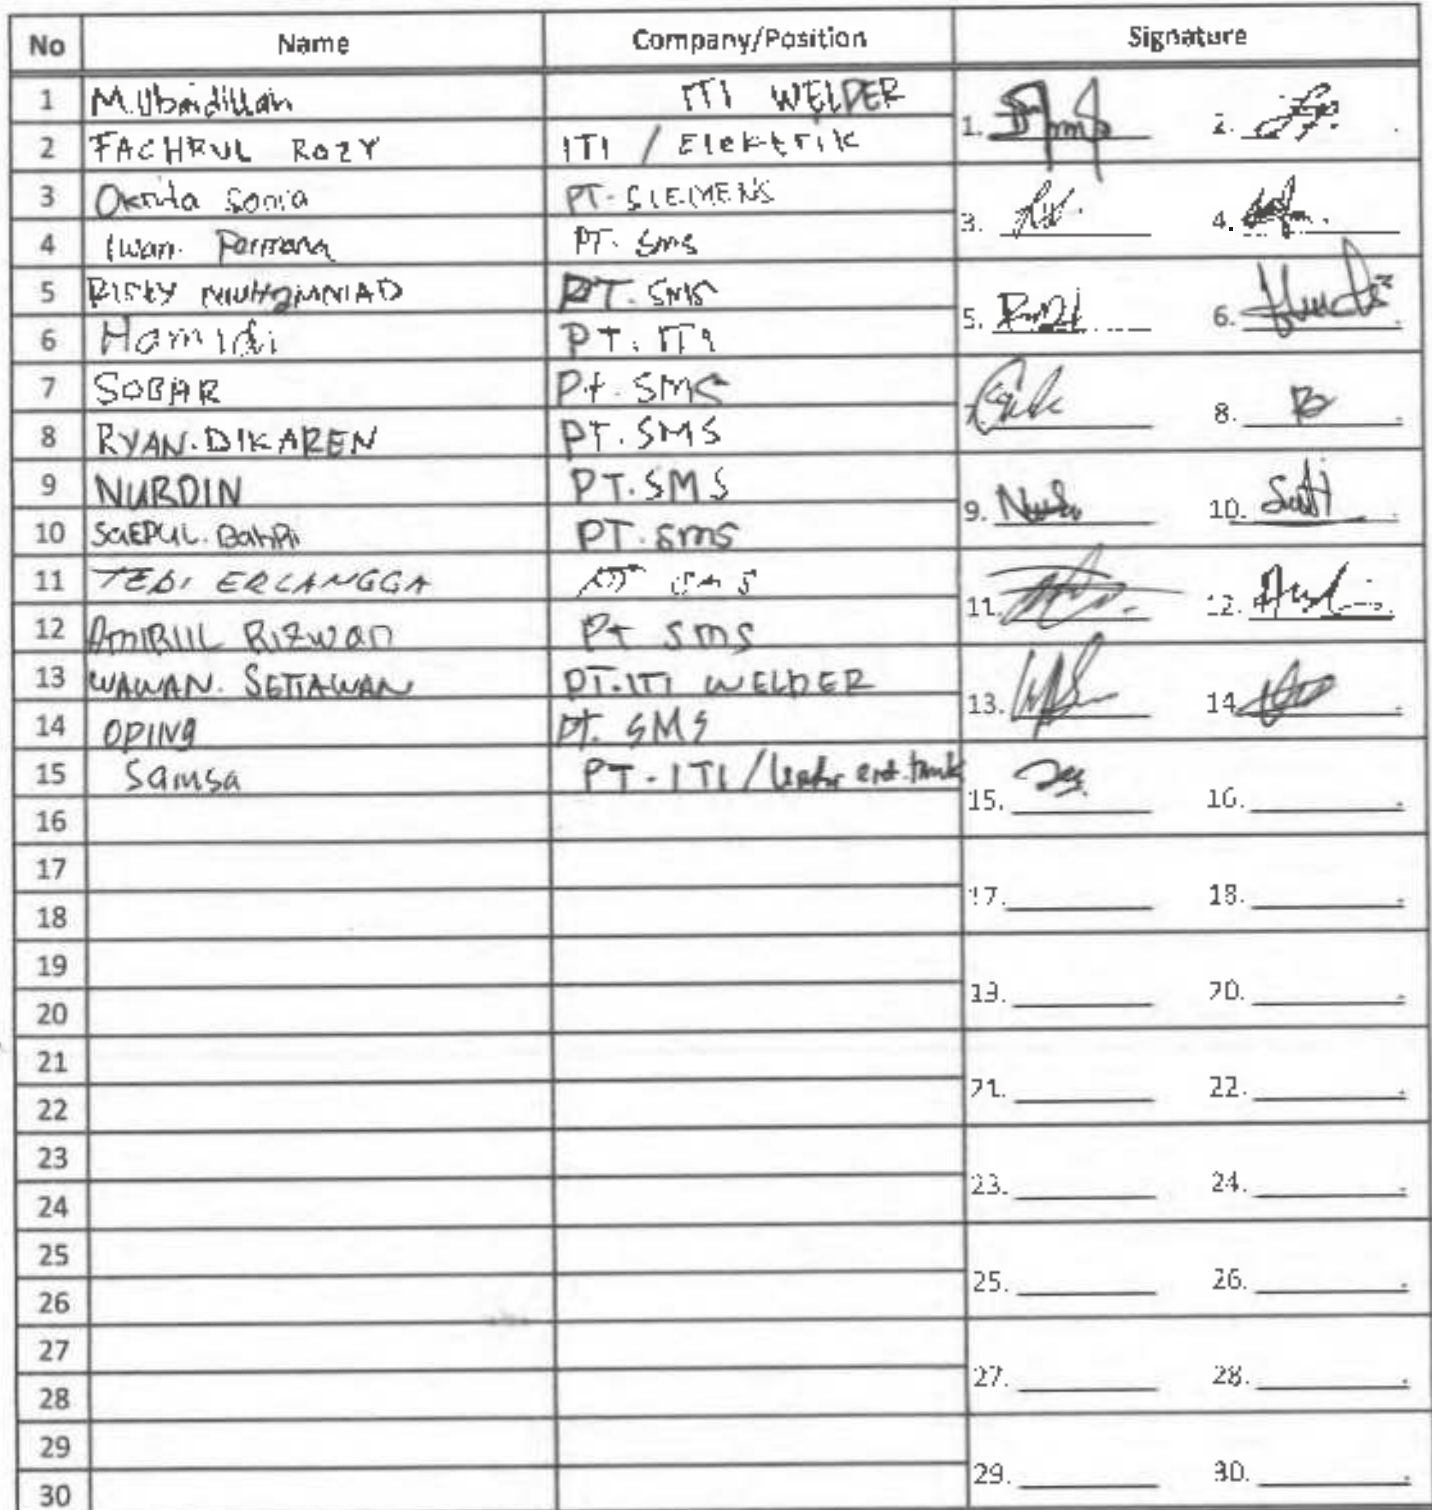 No Name Company/Position Signature
1 M.Ubaidillah ITI WELDER 1. 2.
2 FACHRUL ROZY ITI / Elektrik
3 Oktrida Sonia PT. SIEMENS 3. 4.
4 Iwan. Permana PT. Sms
5 RISKY MUHAMMAD PT. SMS 5. 6.
6 Hamidi PT. ITI
7 SOBAR Pt. SMS 8.
8 RYAN.DIKAREN PT. SMS
9 NURDIN PT. SMS 9. 10.
10 SaEPUL. BahRi PT. sms
11 TEDI ERLANGGA PT SMS 11. 12.
12 AMIRUL RIZWan Pt sms
13 WAWAN. SETIAWAN PT. ITI WELDER 13. 14.
14 OPING Pt. SMS
15 Samsa PT - ITI / 15. 16.
16
17 17. 18.
18
19 19. 20.
20
21 21. 22.
22
23 23. 24.
24
25 25. 26.
26
27 27. 28.
28
29 29. 30.
30